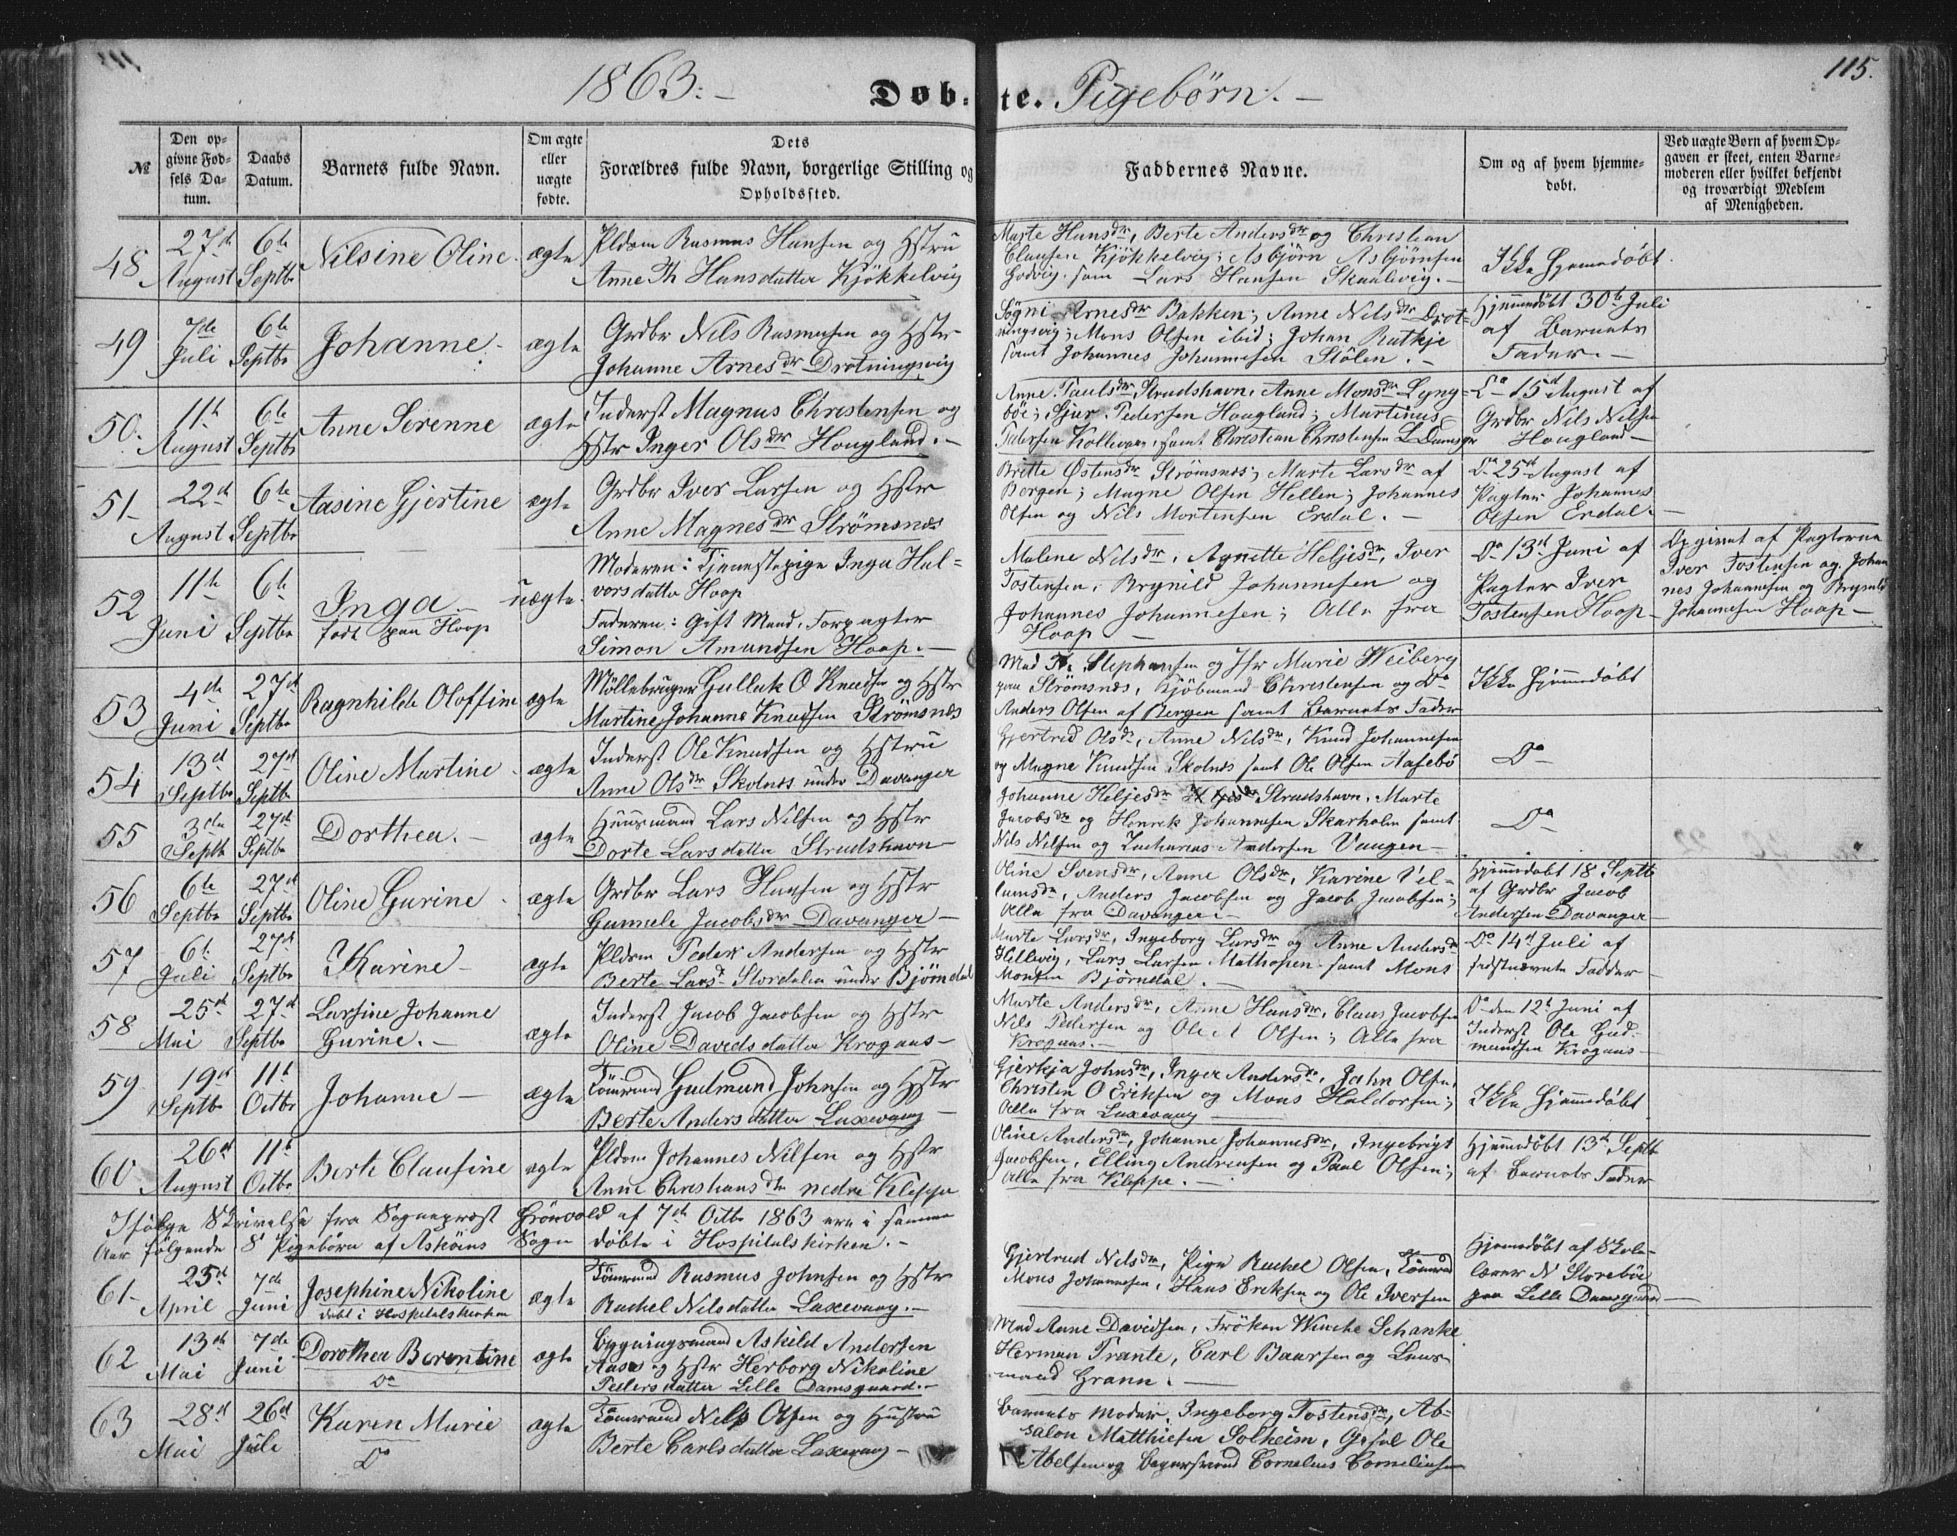 1863.
Døbte. Pigebørn.
115.
№
Den opgivne Fødsels Datum.
Daabs Datum.
Barnets fulde Navn.
Om ægte eller uægte fødte.
Dets Forældres fulde Navn, borgerlige Stilling og Opholdssted.
Faddernes Navne.
Om og af hvem hjemmedøbt.
Ved uægte Børn af hvem Opgaven er skeet, enten Barnemoderen eller hvilket bekjendt og troværdigt Medlem af Menigheden.
48. 27de August 6te Septbr Nilsine Oline ægte
Pldsm Rasmus Hansen og Hstru
Anne Th Hansdatter Kjøkkelvig
Marte Hansdr, Berte Andersdr og Christian
Clausen Kjøkkelvig; Asbjörn Asbjörnsen
Godvig samt Lars Hansen Skaalevig.
Ikke Hjemmedøbt.
49 7de Juli 6te Septbr Johanne. ægte
Grdbr Nils Rasmusen og Hstr
Johanne Arnesdr Drotningsvig
Søgni Arnesdr Bakken; Anne Nilsdr Drot-
ningsvig; Mons Olsen ibid; Johan Ratkje
samt Johannes Johannesen Stölen.
Hjemmedöbt 30te Juli
af Barnets
Fader.
50. 11te August 6te Septbr Anne Serenne ægte
Inderst Magnus Christensen og
Hstr Inger Olsdr Hougland.
Anne Paulsdr Strudshavn, Anne Monsdr Lyng-
böe; Sjur Pedersen Hougland; Martinus
Pedersen Kollevaag, samt Christian Christensen L Damsgr
Do 15de August af
Grdbr Nils Nilsen
Hougland
51 22de August 6te Septbr Aasine Gjertine ægte
Grdbr Iver Larsen og Hstr
Anne Magnesdr Strømsnæs
Britte Østensdr Strömsnes; Marte Larsdr af
Bergen; Magne Olsen Hellen; Johannes
Olsen og Nils Mortensen Erdal.
Do 25de August af
Pagter Johannes
Olsen Erdal.
52 11te Juni 6te Septbr Inga uægte
født paa Hoop
Moderen: Tjenestepige Inga Hal-
vorsdatter Hoop
Faderen: Gift Mand, Forpagter
Simon Amundsen Hoop.
Malene Nilsdr, Agnette Heljesdr, Iver
Tostensen, Brynild Johannesen og
Johannes Johannesen; Alle fra
Hoop
Do 13de Juni af
Pagter Iver
Tostensen Hoop
Opgivet af Pagterne
Iver Tostensen og Johan
nes Johannesen og Brynild
Johannesen Hoop
53 4de Juni 27de Septbr Ragnhilde Oloffine ægte
Møllebruger Gulluk O Knudsen og Hstr
Martine Johanne Knudsen Strømsnæs
Mad Th. Stephansen og Jfr Marie Weiberg
paa Strömsnæs, Kjöbmand Christensen og Do
Anders Olsen af Bergen samt Barnets Fader
Ikke Hjemmedøbt
54 13de Septbr 27de Septbr Oline Martine ægte
Inderst Ole Knudsen og Hstru
Anne Olsdr Skolnes under Davanger
Gjertrud Olsdr, Anne Nilsdr, Knud Johannesen
og Magne Knudsen Skolnes samt Ole Olsen Aasebö
Do
55 3die Septbr 27de Septbr Dorthea. ægte
Huusmand Lars Nilsen og Hstr
Dorte Larsdatter Strudshavn
Johanne Heljesdr Strudshavn, Marte
Jacobsdr og Henrik Johannesen Skarholm samt
Nils Nilsen og Zacharias Andersen Vaagen
Do
56 6te Septbr 27de Septbr Oline Gurine ægte
Grdbr Lars Hansen og Hstr
Gunnele Jacobsdr Davanger
Oline Svensdr, Anne Olsdr, Karine Vil-
lumsdr, Anders Jacobsen og Jacob Jacobsen;
Alle fra Davanger.
Hjemmedöbt 18 Septbr
af Grdbr Jacob
Andersen Davanger
57 6te Juli 27de Septbr Karine ægte
Pldsm Peder Andersen og Hstr
Berte Larsdr Stordalen under Bjørndal
Marte Larsdr, Ingeborg Larsdr og Anne Andersdr
Hillevig, Lars Larsen Mathopen samt Mons
Monsen Bjørndal.
Do 14de Juli af
sidstnævnte Fadder
58 25de Mai 27de Septbr Larsine Johanne
Gurine. ægte
Inderst Jacob Jacobsen og Hstr
Oline Davidsdatter Krogaas
Marte Andersdr, Anne Hansdr, Claus Jacobsen
Nils Pedersen og Ole Olsen; Alle fra
Krogaas.
Do den 12te Juni af
Inderst Ole Gud-
mundsen Krogaas
59 19de Septbr 11te Octbr Johanne ægte
Tömmrmd Gudmund Johnsen og Hstr
Berte Andersdatter Laxevaag
Gjertja Johnsdr, Inger Andersdr, John Olsen,
Christen O Eriksen og Mons Haldorsen;
Alle fra Laxevaag
Ikke Hjemmedøbt
60 26de August 11te Octbr Berte Clausine ægte
Pldsm Johannes Nilsen og Hstr
Anne Christiansdtr nedre Kleppe
Oline Andersdr, Johanne Johannesdr, Ingebrigt
Jacobsen, Elling Andreasen og Paul Olsen;
Alle fra Kleppe.
Hjemmedöbt 13de Septbr
af Barnets Fader
Ifølge Skrivelse fra Sognepræst Grönvold af 7de Octbr 1863 ere i samme
Aar følgende 8 Pigebörn af Askøens Sogn döbte i Hospitalskirken.
61 25de April 7de Juni Josephine Nikoline ægte
döbt i Hospitalskirken
Tömmrmd Rasmus Johnsen og Hstr
Rachel Nilsdatter Laxevaag.
Gjertrud Nilsdr, Pige Rachel Olsen, Tömrmd
Mons Johannesen, Hans Eriksen og Ole Iversen
Hjemmedöbt af Skole-
lærer N Storebö
paa Lille Damsgaard
62 13de Mai 7de Juni Dorothea Berentine ægte
Do
Bygningsmand Askild Andersen
Aase og Hstr Herborg Nikoline
Pedersdatter Lille Damsgaard.
Mad Anne Davidsen, Fröken Wenche Schanke
Herman Trante, Carl Baarsen og Laur-
mand Grann.
63 28de Mai 26de Juli Karen Marie ægte
Do
Tömmrmd Nils Olsen og Hustru
Berte Carlsdatter Laxevaag
Barnets Moder, Ingeborg Tostensdr, Ab-
salon Matthiesen Solheim, Gesel Ole
Abelsen og Bagersvend Cornelius Corneliusen